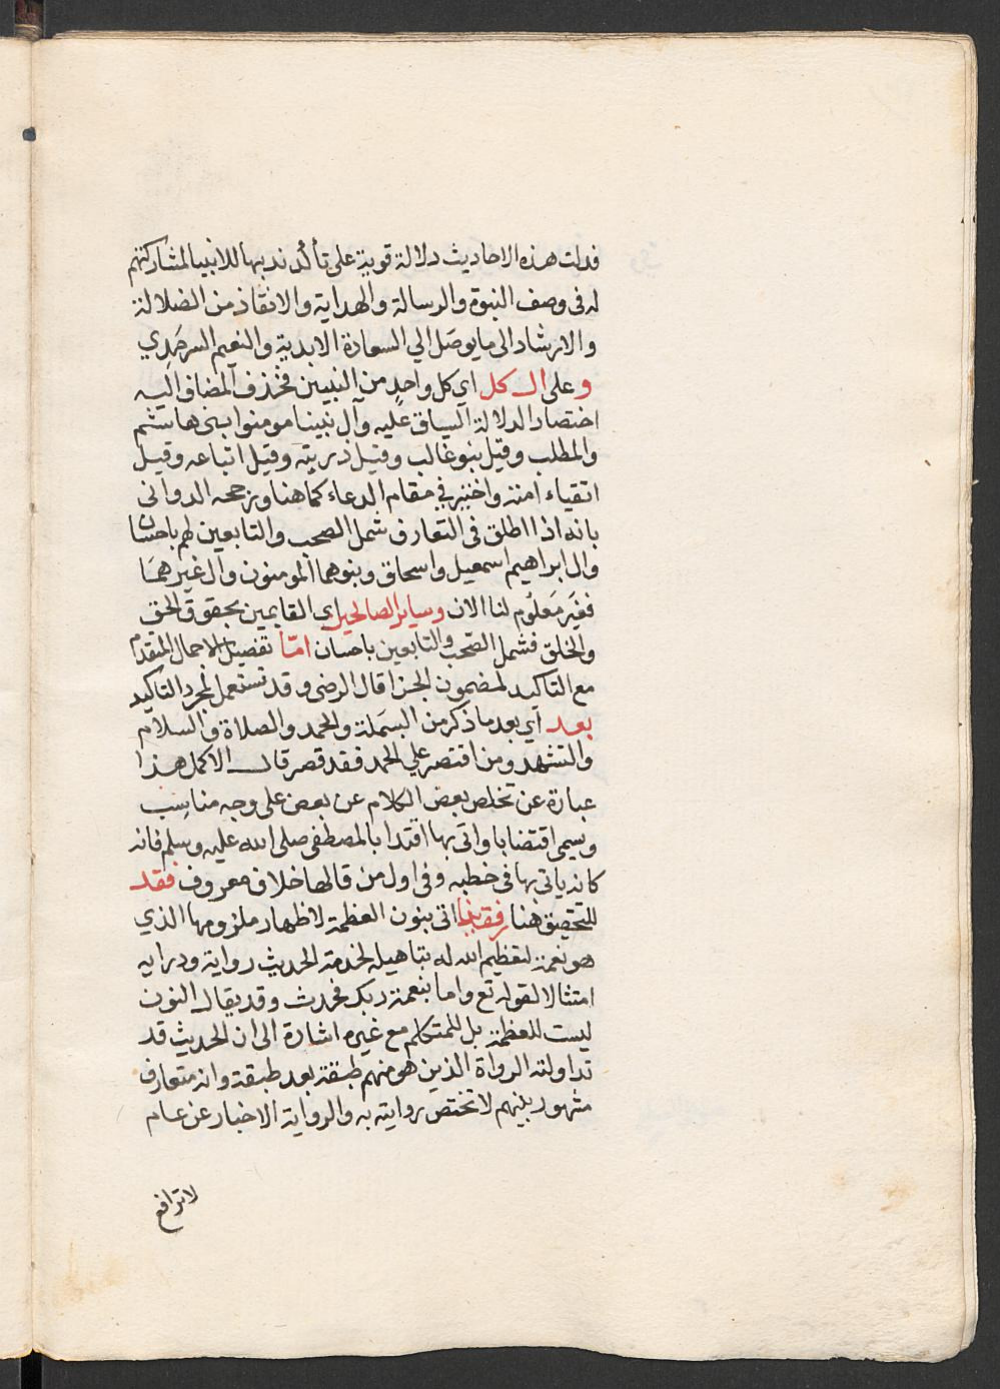 فدلت هذه الاحاديث دلالة قوية على تأكد ندبها للانبيا لمشاركتهم
له فى وصف النبوة والرسالة والهداية والانقاذ من الضلالة
والارشاد الى ما يوصَل الي السعادة الابدية والنعيم السرمَدِي
وعلى ال كل اي كل واحدٍ من النبيين فحذف المضاف اليه
اختصارا لدلالة السياق عليه وآل نبينا مومنوا بنى هاشم
والمطلب وقيل بنو غالب وقيل ذريته وقيل اتباعه وقيل
اتقياء امته واختير في مقام الدعاء كما هنا ورجحه الدوانى
بانه اذا اطلق فى التعارف شمل الصحب والتابعين لهم باحسان
وال ابراهيم اسمعيل واسحاق وبنوهما المومنون وآل غيرهمَا
فغير مَعلوُم لنا الان وساير الصالحين اي القايمين بحقوق الحق
والخلق فشمل الصّحب والتابعين باحسان امّا تفصيل الاجمال المتقدم
مع التاكيد لمضمون الجزا قال الرضى وقد تستعمل لمجرد التاكيد
بعد اي بعد ما ذكر من البسَملة والحمد والصلاة والسلام
والتشهد ومن اقتصر علي الحمد فقد قصر قال الاكمل هذا
عبارة عن تخلص بعض الكلام عن بعض على وجه مناسِب
ويسمى اقتضابا واتى بها اقتدا بالمصطفى صلى الله عليه وسلم فانه
كان ياتى بها فى خطبه وفى اول من قالها خلاف معروف فقد
للتحقيق هنا رفقينا اتى بنون العظمة لاظهار ملزومها الذي
هو نعمة لتعظيم الله له بتاهيله لخدمة الحديث رواية ودراية
امتثالا لقوله تع واما بنعمة ربك فحدث وقد يقال النون
ليست للعظمة بل للمتكلم مع غيره اشارة الى ان الحديث قد
تداولته الرواة الذين هو منهم طبقة بعد طبقة وانه متعارف
مشهور بينهم لا تختص روايته به والرواية الاخبار عن عام
لا ترافع